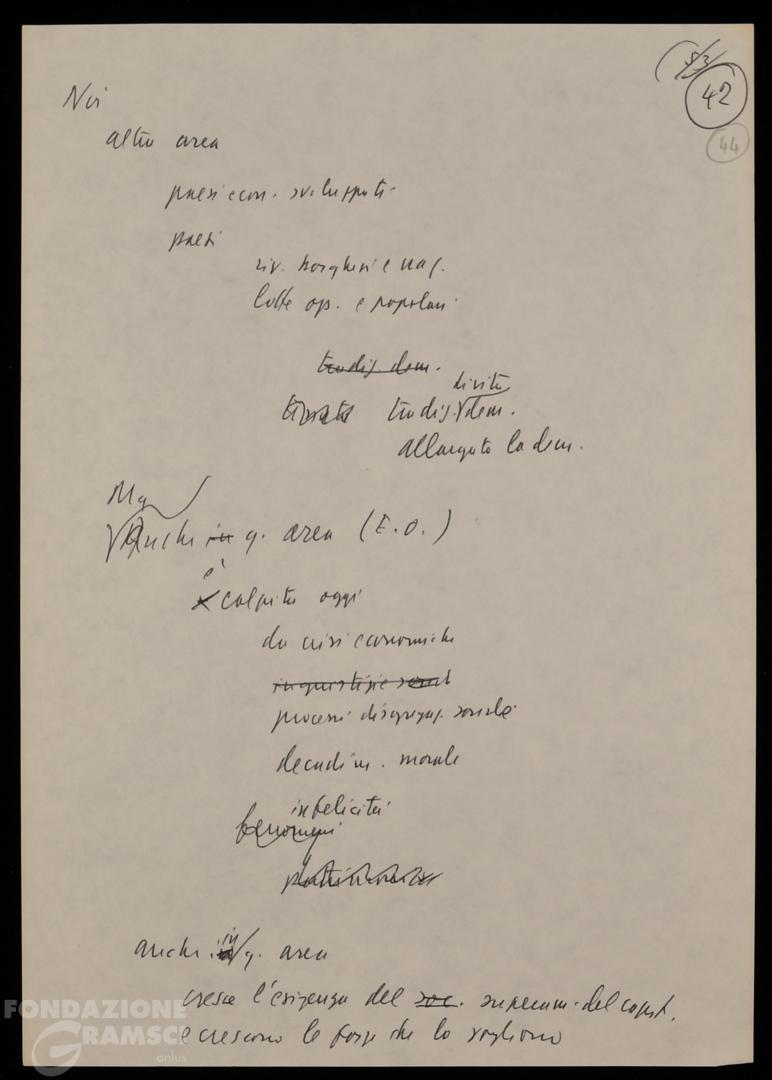 53
42
44
Noi
altra area
paesi econ. sviluppati
paesi
riv. borghesi e naz.
lotte op. e popolari
tradiz. dem.
diritti
tradiz. dem.
allargato la dem.
Ma
Anche in q. area (E.O.)
è
colpita oggi
da crisi economiche
ingiustizie social
processi disgregaz. sociale
decadim. morale
infelicità
fenomeni
anche in q. area
cresce l'esigenza del soc. superam. del capit.
e crescono le forze che lo vogliono
FONDAZIONE
GRAMSCI
onlus